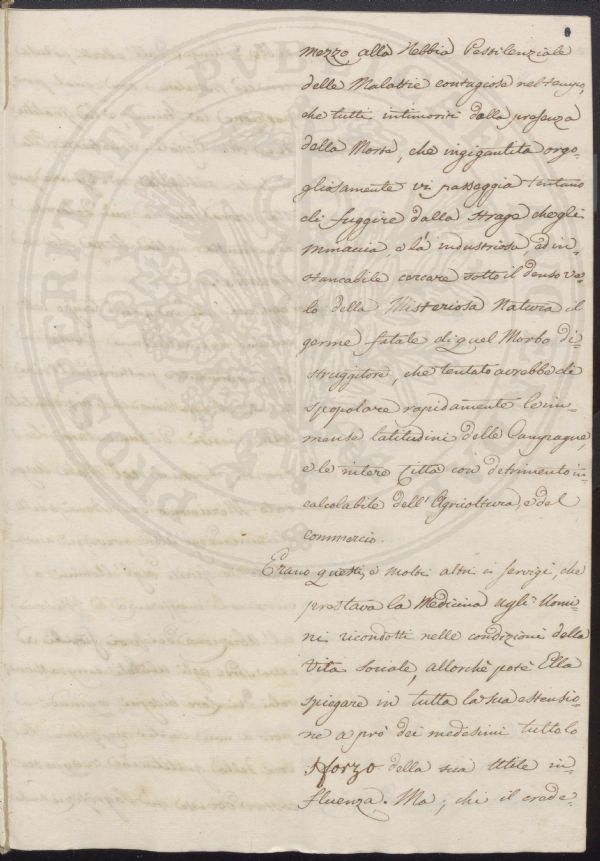 mezzo alla Nebbia Pestilenziale
delle Malattie contagiose nel tempo,
che tutti intimoriti dalla presenza
della Morte, che ingigantita orgo-
gliosamente vi passeggia tentano
di fuggire dalla strage che gli
minaccia, e là industriosa, ed in-
stancabile cercare sotto il denso ve-
lo della Misteriosa Natura il
germe fatale di quel Morbo di-
struggitore, che tentato avrebbe di
spopolare rapidamente le im-
mense latitudini delle Campagne,
e le intere Città con detrimento in-
calcolabile dell'Agricoltura, e del
commercio.
Erano questi, e molti altri i servizi, che
prestava la Medicina agli Uomi-
ni ricondotti nelle condizioni della
Vita sociale, allorchè potè Ella
spiegare in tutta la sua estensio-
ne a prò dei medesimi tutto lo
sforzo della sua utile in-
fluenza. Ma, chi il crede-